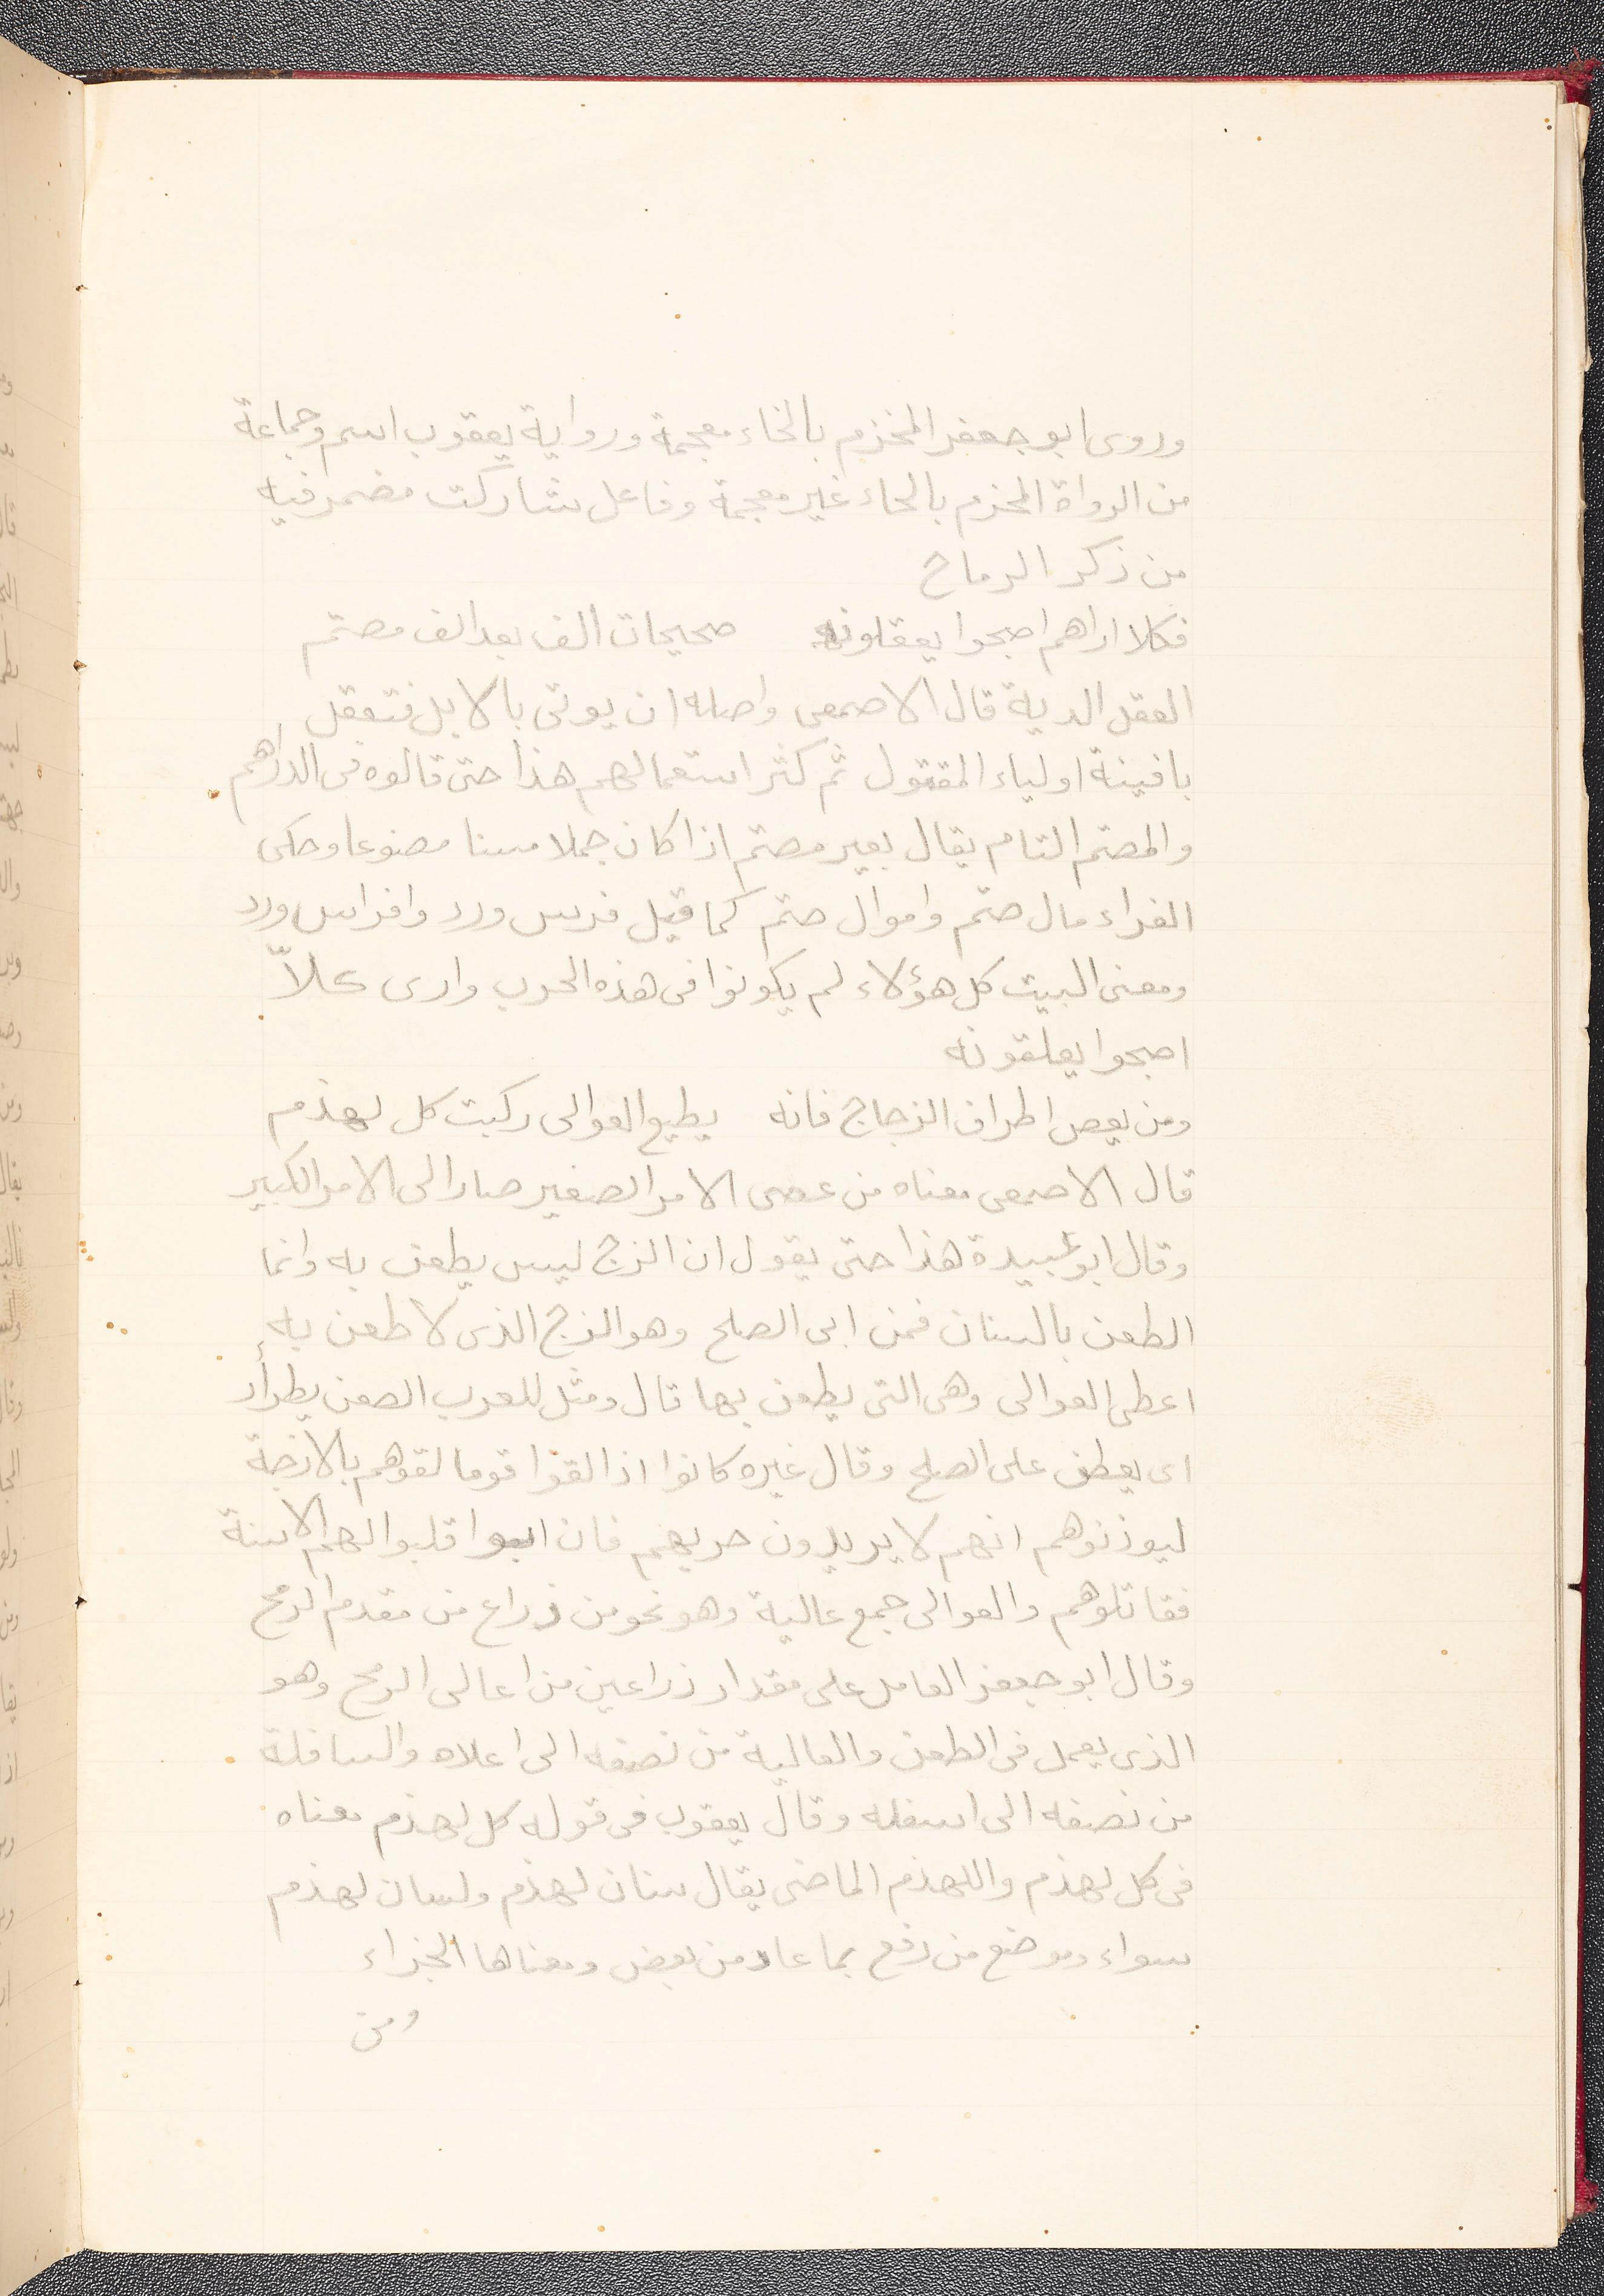 وروى ابو جعفر المخزم بالخاء معجمة ورواية يعقوب اسم وجماعة
من الرواة المحزم بالحاء غير معجمة وفاعل شاركت مضمر فيه
من ذكر الرماح
فكلا اراهم اصبحوا يعقلونه صحيحات الف بعد الف مصتم
العقل الدية قال الاصمعى واصله ان يوتى بالابل فتعقل
بافينة اولياء المقتول ثم كثر استعمالهم هذا حتى قالوه فى الدراهم
والمصتم التام يقال بعير مصتم اذا كان جملا مسنا مصنوعا وحكى
الفراء مال صتم واموال صتم كما قيل فرس ورد وافراس ورد
ومعنى البيت كل هؤلاء لم يكونوا فى هذه الحرب وارى كلاّ
اصبحوا يعلقونه
ومن يعص اطراف الزجاج فانه يطيع العوالى ركبت كل لهذم
قال الاصمعى معناه من عصى الامر الصغير صار الى الامر الكبير
وقال ابو عبيدة هذا حتى يقول ان الزج ليس يطعن به وانما
الطعن بالسنان فمن ابى الصلح وهو الزج الذى لا طعن به
اعطى العوالى وهى التى يطعن بها قال ومثل للعرب الصعن يطرأر
اى يعطف على الصلح وقال غيره كانوا اذا لقوا قوما لقوهم بالازجة
ليوذنوهم انهم لا يريدون حربهم فان ابوا قلبوا لهم الاسنة
فقاتلوهم والعوالى جمع عالية وهو نحو من ذراع من مقدم الرمح
وقال ابو جعفر العامل على مقدار ذراعين من اعالى الرمح وهو
الذى يعمل فى الطعن والعالية من نصفه الى اعلاه والسافلة
من نصفه الى اسفله وقال يعقوب فى قوله كل لهذم معناه
فى كل لهذم واللهذم الماضى يقال سنان لهذم ولسان لهذم
سواء وموضع من رفع بما عاد من يعض ومعناها الجزاء
ومن